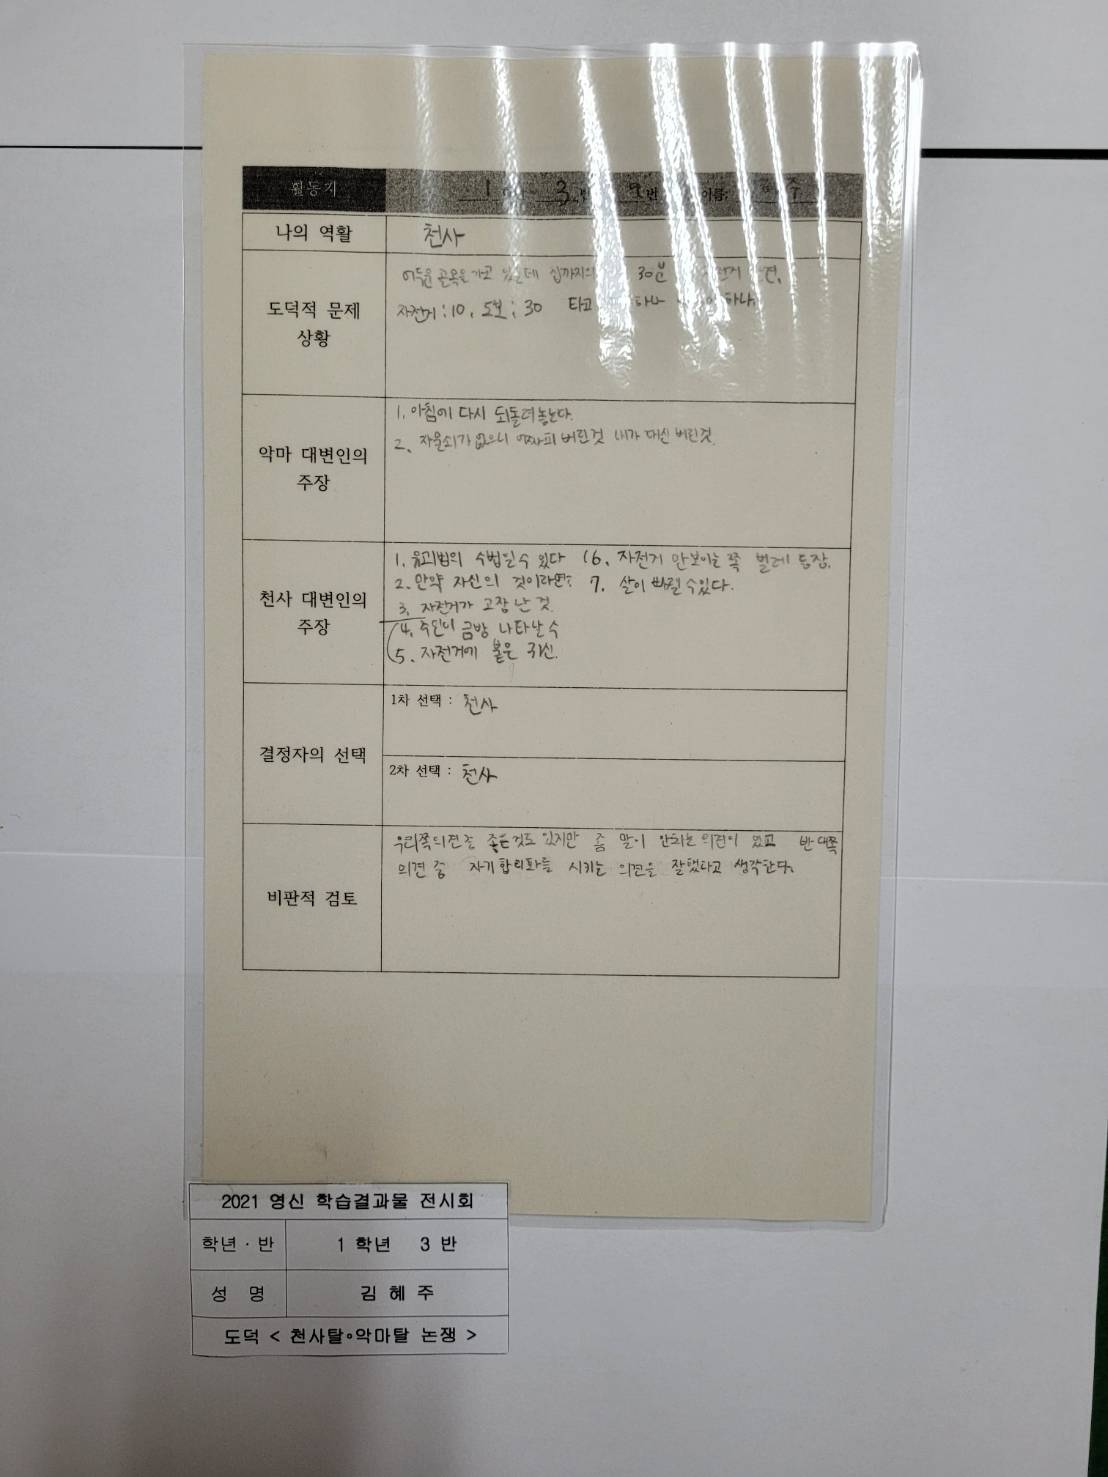 활동지 1 3 번 이름: 주
나의 역할 천사
도덕적 문제 상황
어두운 골목을 가고 있는데 집까지의 30분
자전거:10, 도보:30 타고
악마 대변인의 주장
1. 아침에 다시 되돌려놓는다.
2. 자물쇠가 없으니 어차피 버린것 내가 대신 버린것.
천사 대변인의 주장
1. 유괴범의 수법일수 있다
2. 만약 자신의 것이라면?
3. 자전거가 고장 난 것.
4. 주인이 금방 나타난 수
5. 자전거에 붙은 귀신.
6. 자전거 안보이는 쪽 벌레 등장.
7. 살이 빠질 수있다.
결정자의 선택
1차 선택 : 천사
2차 선택 : 천사
비판적 검토
우리쪽의견중 좋은것도 있지만 좀 말이 안되는 의견이 있고 반대쪽
의견 중 자기합리화를 시키는 의견을 잘했다고 생각한다.
2021 영신 학습결과물 전시회
학년·반 1 학년 3 반
성 명 김 혜 주
도덕 < 천사탈∘악마탈 논쟁 >